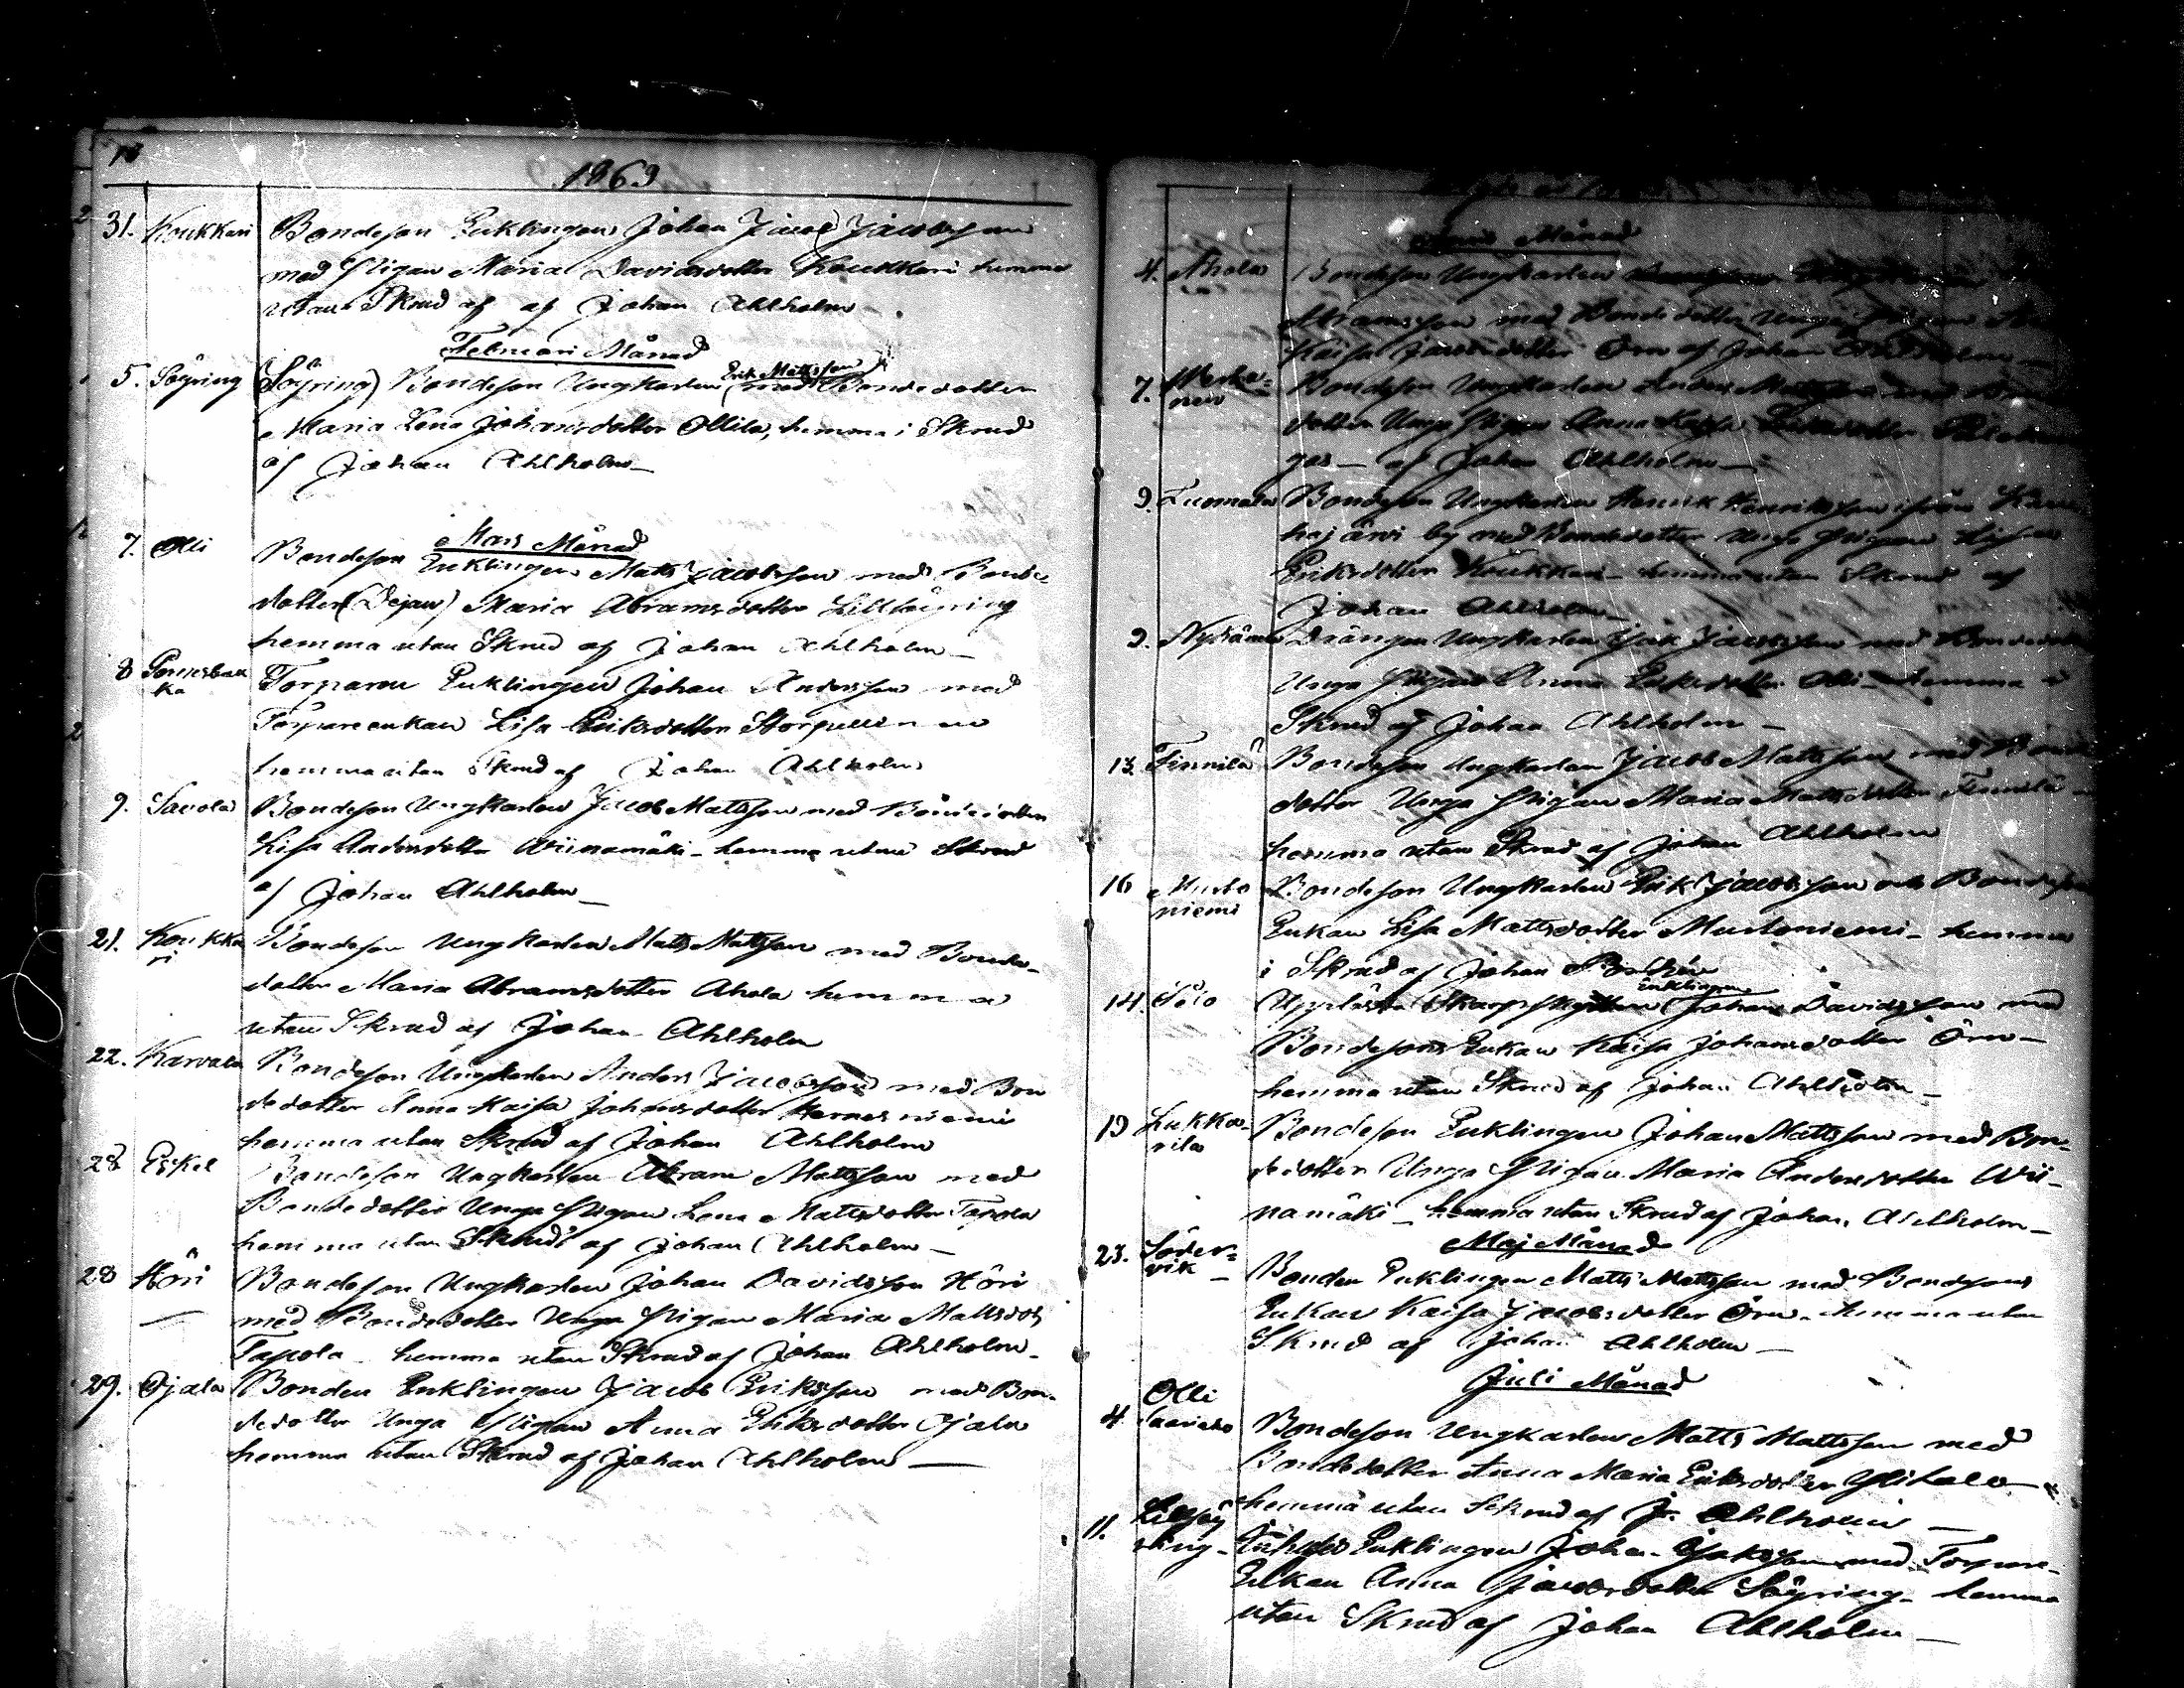 1869
31. Koukkari Bondeson Enklingen Johan Jacob Jacobsson
med Pigan Maria Davidsdotter Koukkari hemma
utan Skrud af af Johan Ahlholm
Februari Månad
5. Söyring (Söyring) Bondeson Ungkarlen Erik Mattsson med Bondedotter
Maria Lena Johansdotter Ollila, hemma i Skrud
af Johan Ahlholm
Mars Månad
7. Olli Bondeson Enklingen Matts Jacobsson med Bonde
dotter (Dejan) Maria Abramsdotter Lillsöyring
hemma utan Skrud af Johan Ahlholm
8 Torparen Enklingen Johan Andersson med
Torpareenkan Lisa Eriksdotter
hemma utan Skrud af Johan Ahlholm
9. Savola Bondeson Ungkarlen Jacob Mattsson med Bondedotter
Lisa Andersdotter Wiinamäki - hemma utan Skrud
af Johan Ahlholm
21. Koukkari Bondeson Ungkarlen Matts Mattsson med Bonde-
dotter Maria Abramsdotter Ahola hemma
utan Skrud af Johan Ahlholm
22. Karvala Bondeson Ungkarlen Anders Jacobsson med Bon
dedotter Anna Kaisa Johansdotter Hernesniemi
hemma utan Skrud af Johan Ahlholm
28 Eskel Bondeson Ungkarlen Abram Mattsson med
Bondedotter Unga Pigan Lena Mattsdotter Tapola
hemma utan Skrud af Johan Ahlholm
28 Höri Bondeson Ungkarlen Johan Davidsson Höri
med Bondedotter Unga Pigan Maria Mattsdotr
Tapola - hemma utan Skrud af Johan Ahlholm
29. Ojala Bonden Enklingen Jacob Eriksson med Bon-
dedotter Unga Pigan Anna Eriksdotter Ojala
hemma utan Skrud af Johan Ahlholm
Månad
4. Ahola Bondeson Ungkarlen
Abramsson med Bondedotter Unga Pigan
Kaisa Jacobsdotter Örn af Johan
7. Bondeson Ungkarlen Anders Mattsson med
dotter Unga Pigan Anna Kaisa
af Johan Ahlholm
9. Tuomala Bondeson Ungkarlen Henrik Henriksson ifrån
hajärvi by med Bondedotter Unga Pigan Lisa
Eriksdotter Koukkari - hemma utan Skrud af
Johan Ahlholm
9. Drängen Ungkarlen Isak Jacobsson med
Unga Pigan Anna Eriksdotter Olli - hemma i
Skrud af Johan Ahlholm
13. Finnilä Bondeson Ungkarlen Jacob Mattsson med Bonde
dotter Unga Pigan Maria Mattsdotter Finnilä
hemma utan Skrud af Johan Ahlholm
16 Mustoniemi Bondeson Ungkarlen Erik Jacobsson och Bondeson
Enkan Lisa Mattsdotter Mustoniemi - hemma
i Skrud af Johan
14. Salo Enklingen Johan Davidsson med
Bondesons Enkan Kaisa Johansdotter Örn -
hemma utan Skrud af Johan Ahlholm
19 Lukkarila Bondeson Enklingen Johan Mattsson med Bon-
dedotter Unga Pigan Maria Andersdotter Wii-
namäki - hemma utan Skrud af Johan Ahlholm
Maj Månad
23. Södervik Bonden Enklingen Matts Mattsson med Bondesons
Enkan Kaisa Jacobsdotter Örn - hemma utan
Skrud af Johan Ahlholm
Juli Månad
4. Olli Bondeson Ungkarlen Matts Mattsson med
Bondedotter Anna Maria Eriksdotter Ylitalo
hemma utan Skrud af Jn Ahlholm
11. Enklingen Johan Isaksson med Torpare-
Enkan Anna Jacobsdotter Söyring - hemma
utan Skrud af Johan Ahlholm